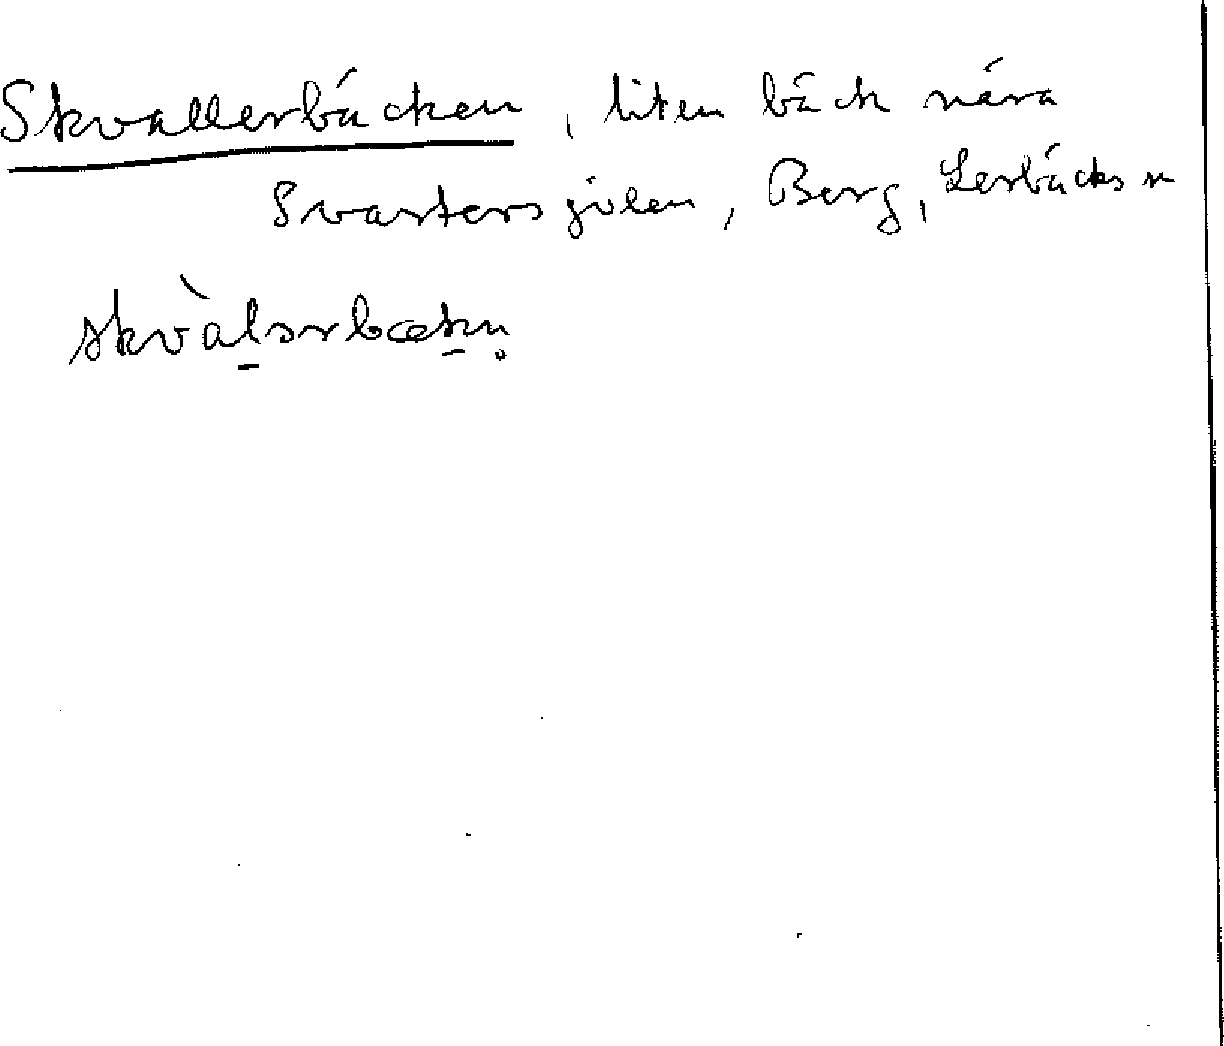 Skvallerbäcken, liten bäck nära
Svartersgölen, Berg, Lerbäcks sn
skvàl̠ərbæk̠n̥